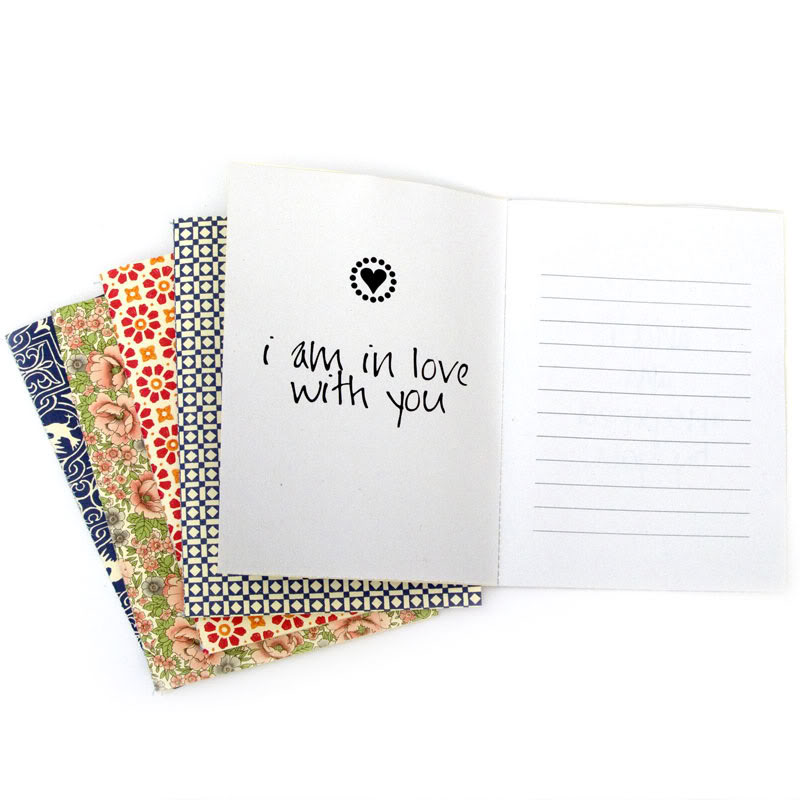 i am in love
with you